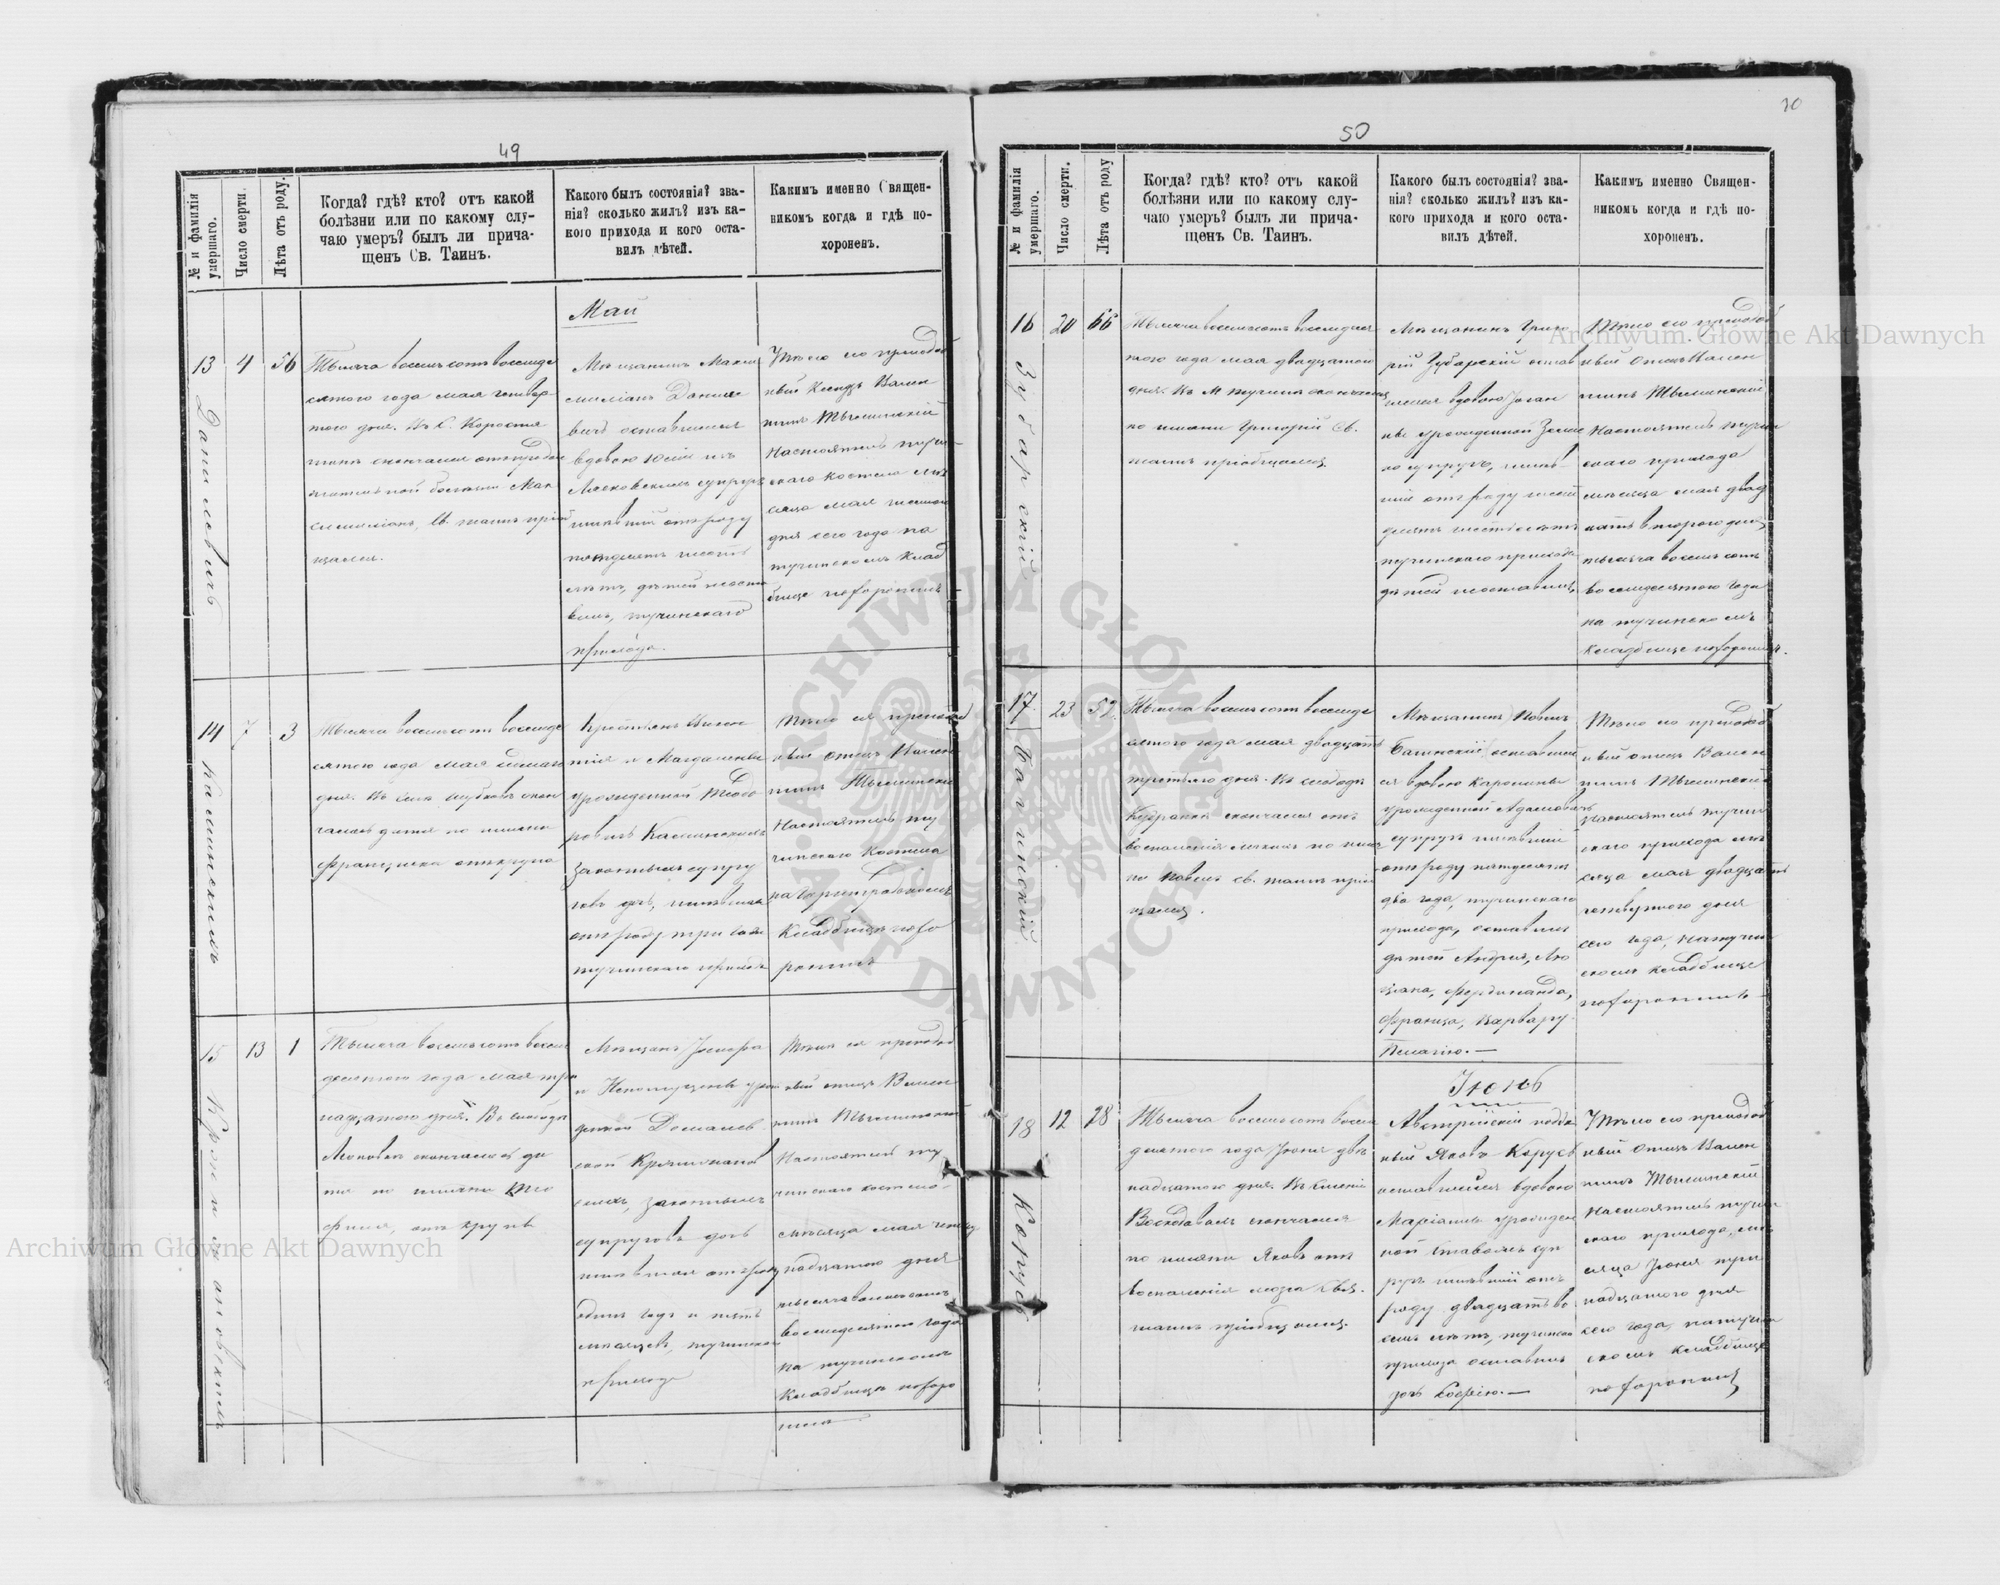 49
№ и фамилія умершаго.
Число смерти.
Лѣта отъ роду.
Когда? гдѣ? кто? отъ какой
болѣзни или по какому слу-
чаю умеръ? былъ ли прича-
щенъ Св. Таинъ.
Какого былъ состоянія? зва-
нія? сколько жилъ? изъ ка-
кого прихода и кого оста-
вилъ дѣтей.
Какимъ именно Священ-
никомъ когда и гдѣ по-
хороненъ.
Май
13 4 56
Даниловичъ
Тысяча восемьсотъ восемьде
сятого года мая четвер-
того дня. Въ С. Коростя
тинъ скончался отъ
болѣзни Мак
симиліанъ, Св. таинъ пріоб
щался.
Мѣщанинъ Макси
миліанъ Данило
вичъ оставившій
вдовою Юлію изъ
супругъ
жившій отъ роду
пятдесятъ шесть
лѣтъ, дѣтей неоста
вилъ, тучинскаго
прихода.
Тѣло его преподоб
ный Ксендзъ Вален
тинъ Тышинскій
Настоятель тучин-
скаго костела мѣ
сяца мая шестого
дня сего года на
тучинскомъ клад
бище похоронилъ
14 7 3
Калинскихъ
Тысяча восемьсотъ восемьде
сятого года мая седьмаго
дня. Въ скон
чалась дитя по имени
Франциска отъ крупа
Крестьянъ Викен
тія и Магдалены
урожденной Теодо
ровичъ Калинскихъ
законныхъ супру
говъ дочь, жившая
отъ роду три года
тучинскаго прихода
Тѣло ея преподоб
ный отецъ Вален
тинъ Тышинскій
Настоятель ту
чинского Костела
на
Кладбищѣ похо
ронилъ
15 13 1
Кржижановскихъ
Тысяча восемьсотъ восемь
десятого года мая три
надцатого дня. Въ слободѣ
скончалась ди
тя по имени Тео
филія, отъ крупа
Мѣщанъ Іосифа
и урож
денной
законныхъ
супруговъ дочь
жившая отъ роду
одинъ годъ и пять
мѣсяцевъ, тучинскаго
прихода
Тѣло ея преподоб
ный отецъ Вален
тинъ Тышинскій
Настоятель ту
чинскаго костела
мѣсяца мая четыр
надцатого дня
тысяча восемьсотъ
восемьдесятого года
на тучинскомъ
Кладбищѣ похоро
нилъ
50
20
№ и фамилія умершаго.
Число смерти.
Лѣта отъ роду
Когда? гдѣ? кто? отъ какой
болѣзни или по какому слу-
чаю умеръ? былъ ли прича-
щенъ Св. Таинъ.
Какого былъ состоянія? зва-
нія? сколько жилъ? изъ ка-
кого прихода и кого оста-
вилъ дѣтей.
Какимъ именно Священ-
никомъ когда и гдѣ по-
хороненъ.
16 20 66
Зубарскій
Тысяча восемьсотъ восемьдеся
того года мая двадцатого
дня. Въ М. Тучинъ скончался
по имени Григорій Св.
таинъ пріобщался.
Мѣщанинъ Григо
рій Зубарскій остав
шеюся вдовою Іоан
ны урожденной
супругъ, жив-
шій отъ роду шесть
десятъ шесть лѣтъ
тучинскаго прихода
дѣтей неоставилъ
Тѣло его преподоб
ный Отецъ Вален
тинъ Тышинскій
Настоятель тучин
скаго прихода
мѣсяца мая двад
цать второго дня
тысяча восемьсотъ
восемьдесятого года
на тучинскомъ
кладбище похоронилъ.
17 23 52
Багинскій
Тысяча восемьсотъ восемьде
сятого года мая двадцать
третьяго дня. Въ слободѣ
скончался отъ
воспаленія легкихъ по име
ни Павелъ св. таинъ пріоб
щался.
Мѣщанинъ Павелъ
Багинскій оставшей
ся вдовою Каролины
урожденной Адамовичъ
супругъ жившій
отъ роду пятдесятъ
два года, тучинскаго
прихода, оставилъ
дѣтей Андрея, Лю
ціяна, Фердинанда,
Франца, Варвару.
Пелагію.—
Тѣло его преподоб
ный отецъ Вален
тинъ Тышинскій
Настоятель тучин
скаго прихода мѣ
сяца мая двадцать
четвертого дня
сего года, на тучин
скомъ кладбище
похоронилъ
Іюнь
18 12 28
Корусь
Тысяча восемьсотъ восемь
десятого года Іюня двѣ
надцатого дня. Въ имѣніи
Воскодавахъ скончался
по имени Яковъ отъ
воспаленія мозга Свя.
таинъ пріобщался.
Австрійскій поддан
ный Яковъ Корусь
оставшейся вдовою
Маріанны урожден
ной суп
ругъ жившій отъ
роду двадцать во
семь лѣтъ, тучинскаго
прихода оставилъ
дочь Софію.—
Тѣло его преподоб
ный Отецъ Вален
тинъ Тышинскій
Настоятель тучин
скаго прихода, мѣ
сяца Іюня три
надцатого дня
сего года, на тучин
скомъ Кладбище
похоронилъ
Archiwum Główne Akt Dawnych
Archiwum Główne Akt Dawnych
ARCHIWUM GŁÓWNE
AKT DAWNYCH